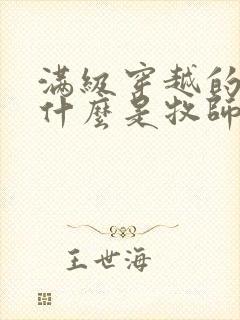 滿級穿越的
什麼是牧師
王世海